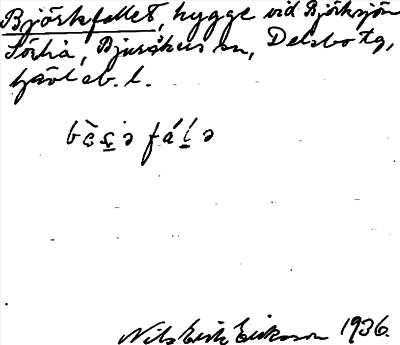 Björkfallet, hygge vid Björksjön
Sörhå, Bjuråker sn, Delsbo tg,
Gävleb. l.
Nils Erik Eriksson 1936.